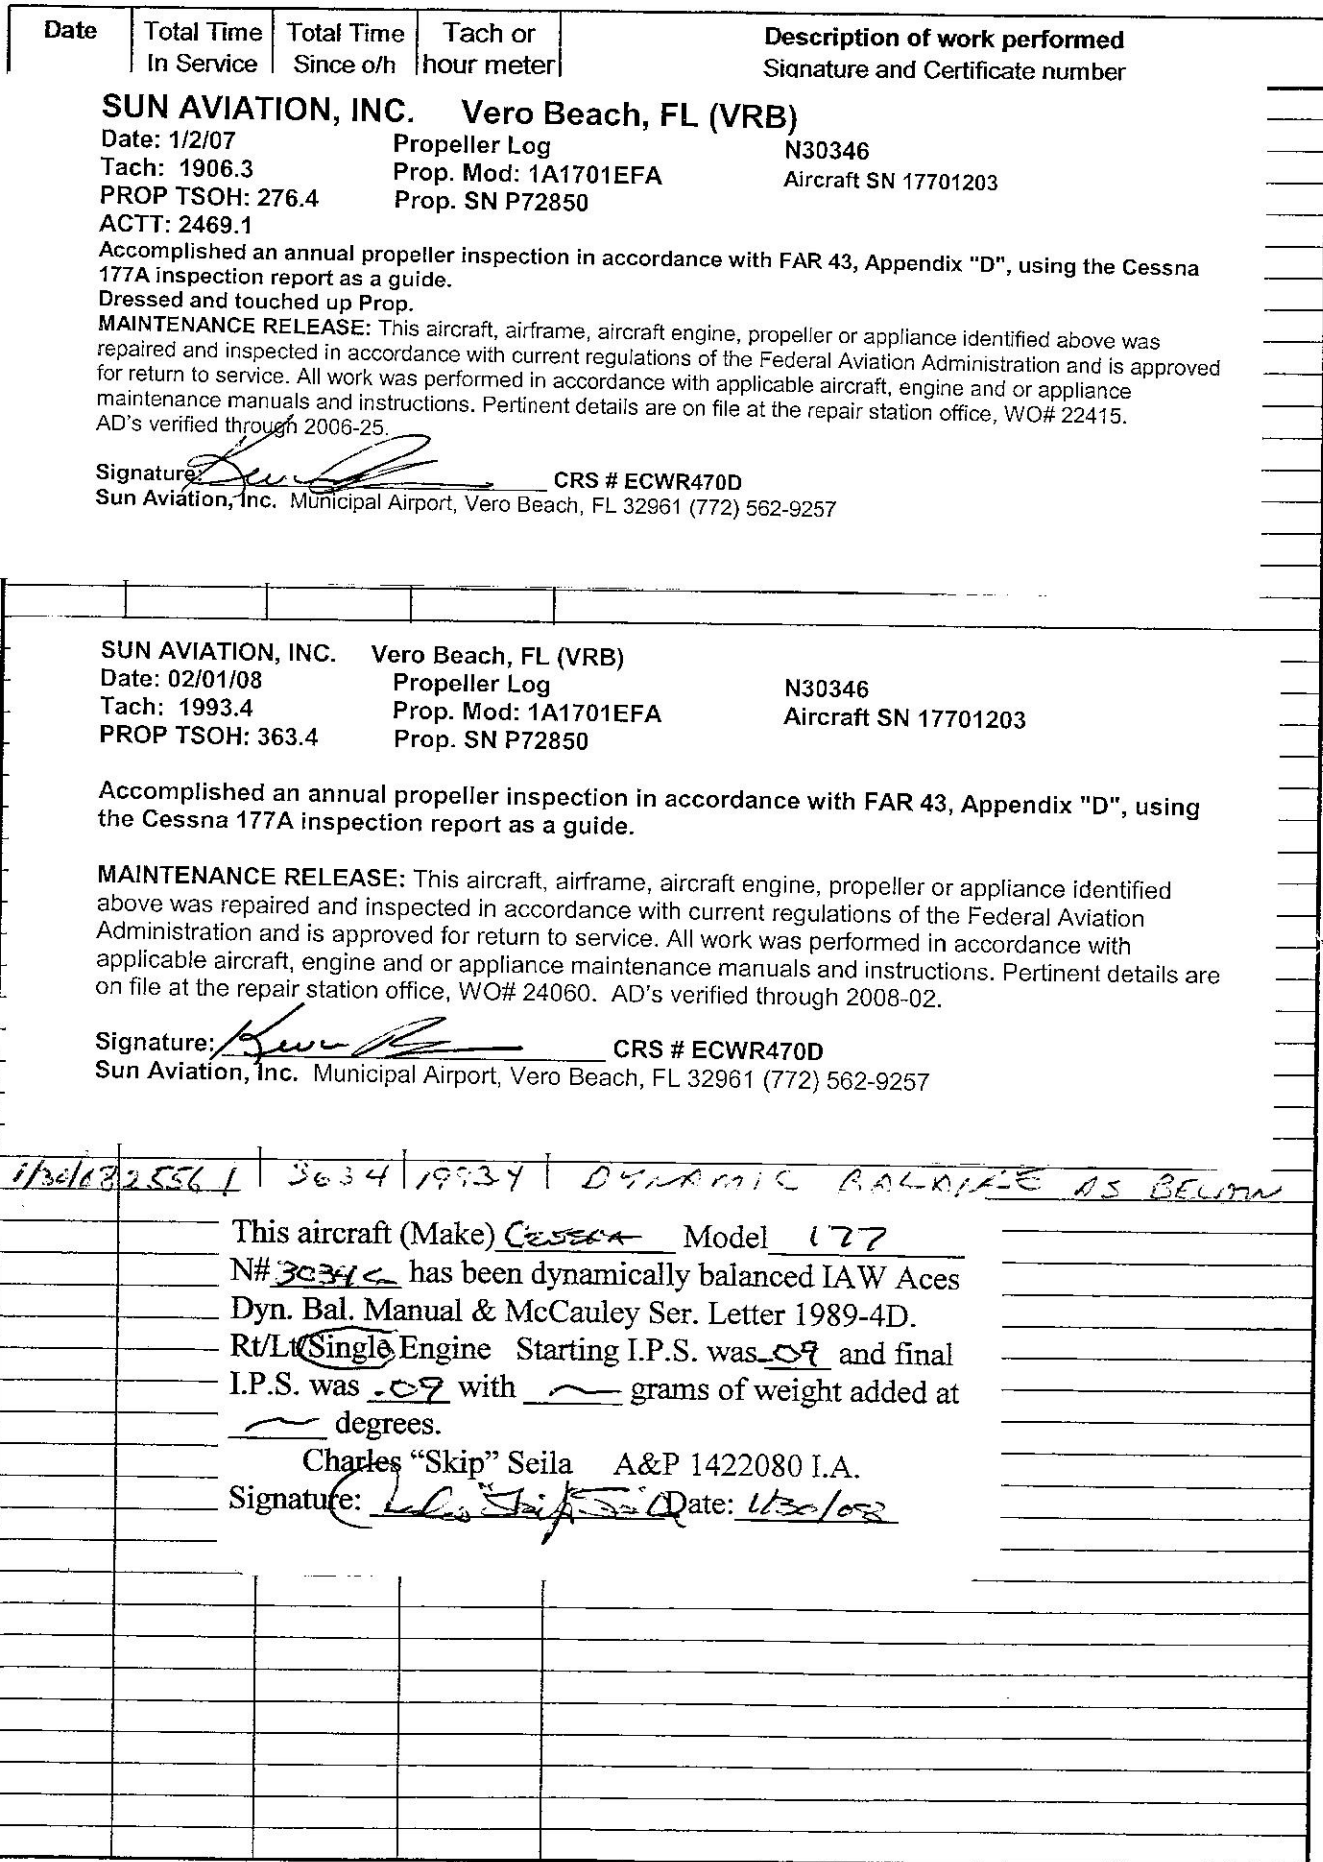 Date Total Time In Service Total Time Since o/h Tach or hour meter Description of work performed
Signature and Certificate number
SUN AVIATION, INC. Vero Beach, FL (VRB)
Date: 1/2/07 Propeller Log N30346
Tach: 1906.3 Prop. Mod: 1A1701EFA Aircraft SN 17701203
PROP TSOH: 276.4 Prop. SN P72850
ACTT: 2469.1
Accomplished an annual propeller inspection in accordance with FAR 43, Appendix "D", using the Cessna
177A inspection report as a guide.
Dressed and touched up Prop.
MAINTENANCE RELEASE: This aircraft, airframe, aircraft engine, propeller or appliance identified above was
repaired and inspected in accordance with current regulations of the Federal Aviation Administration and is approved
for return to service. All work was performed in accordance with applicable aircraft, engine and or appliance
maintenance manuals and instructions. Pertinent details are on file at the repair station office, WO# 22415.
AD's verified through 2006-25.
Signature: CRS # ECWR470D
Sun Aviation, Inc. Municipal Airport, Vero Beach, FL 32961 (772) 562-9257
SUN AVIATION, INC. Vero Beach, FL (VRB)
Date: 02/01/08 Propeller Log N30346
Tach: 1993.4 Prop. Mod: 1A1701EFA Aircraft SN 17701203
PROP TSOH: 363.4 Prop. SN P72850
Accomplished an annual propeller inspection in accordance with FAR 43, Appendix "D", using
the Cessna 177A inspection report as a guide.
MAINTENANCE RELEASE: This aircraft, airframe, aircraft engine, propeller or appliance identified
above was repaired and inspected in accordance with current regulations of the Federal Aviation
Administration and is approved for return to service. All work was performed in accordance with
applicable aircraft, engine and or appliance maintenance manuals and instructions. Pertinent details are
on file at the repair station office, WO# 24060. AD's verified through 2008-02.
Signature: CRS # ECWR470D
Sun Aviation, Inc. Municipal Airport, Vero Beach, FL 32961 (772) 562-9257
1/30/08 2556 1 363 4 1993 4 DYNAMIC BALANCE AS BELOW
This aircraft (Make) Cessna Model 177
N# 30346 has been dynamically balanced IAW Aces
Dyn. Bal. Manual & McCauley Ser. Letter 1989-4D.
Rt/Lt/Single Engine Starting I.P.S. was .09 and final
I.P.S. was .09 with — grams of weight added at
— degrees.
Charles “Skip” Seila A&P 1422080 I.A.
Signature: Date: 1/30/08